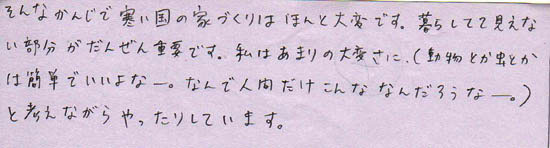 そんなかんじで寒い国の家づくりはほんと大変です。暮らしてて見えな
い部分がだんぜん重要です。私はあまりの大変さに、(動物とか虫とか
は簡単でいいよなー。なんで人間だけこんななんだろうなー。)
と考えながらやったりしています。